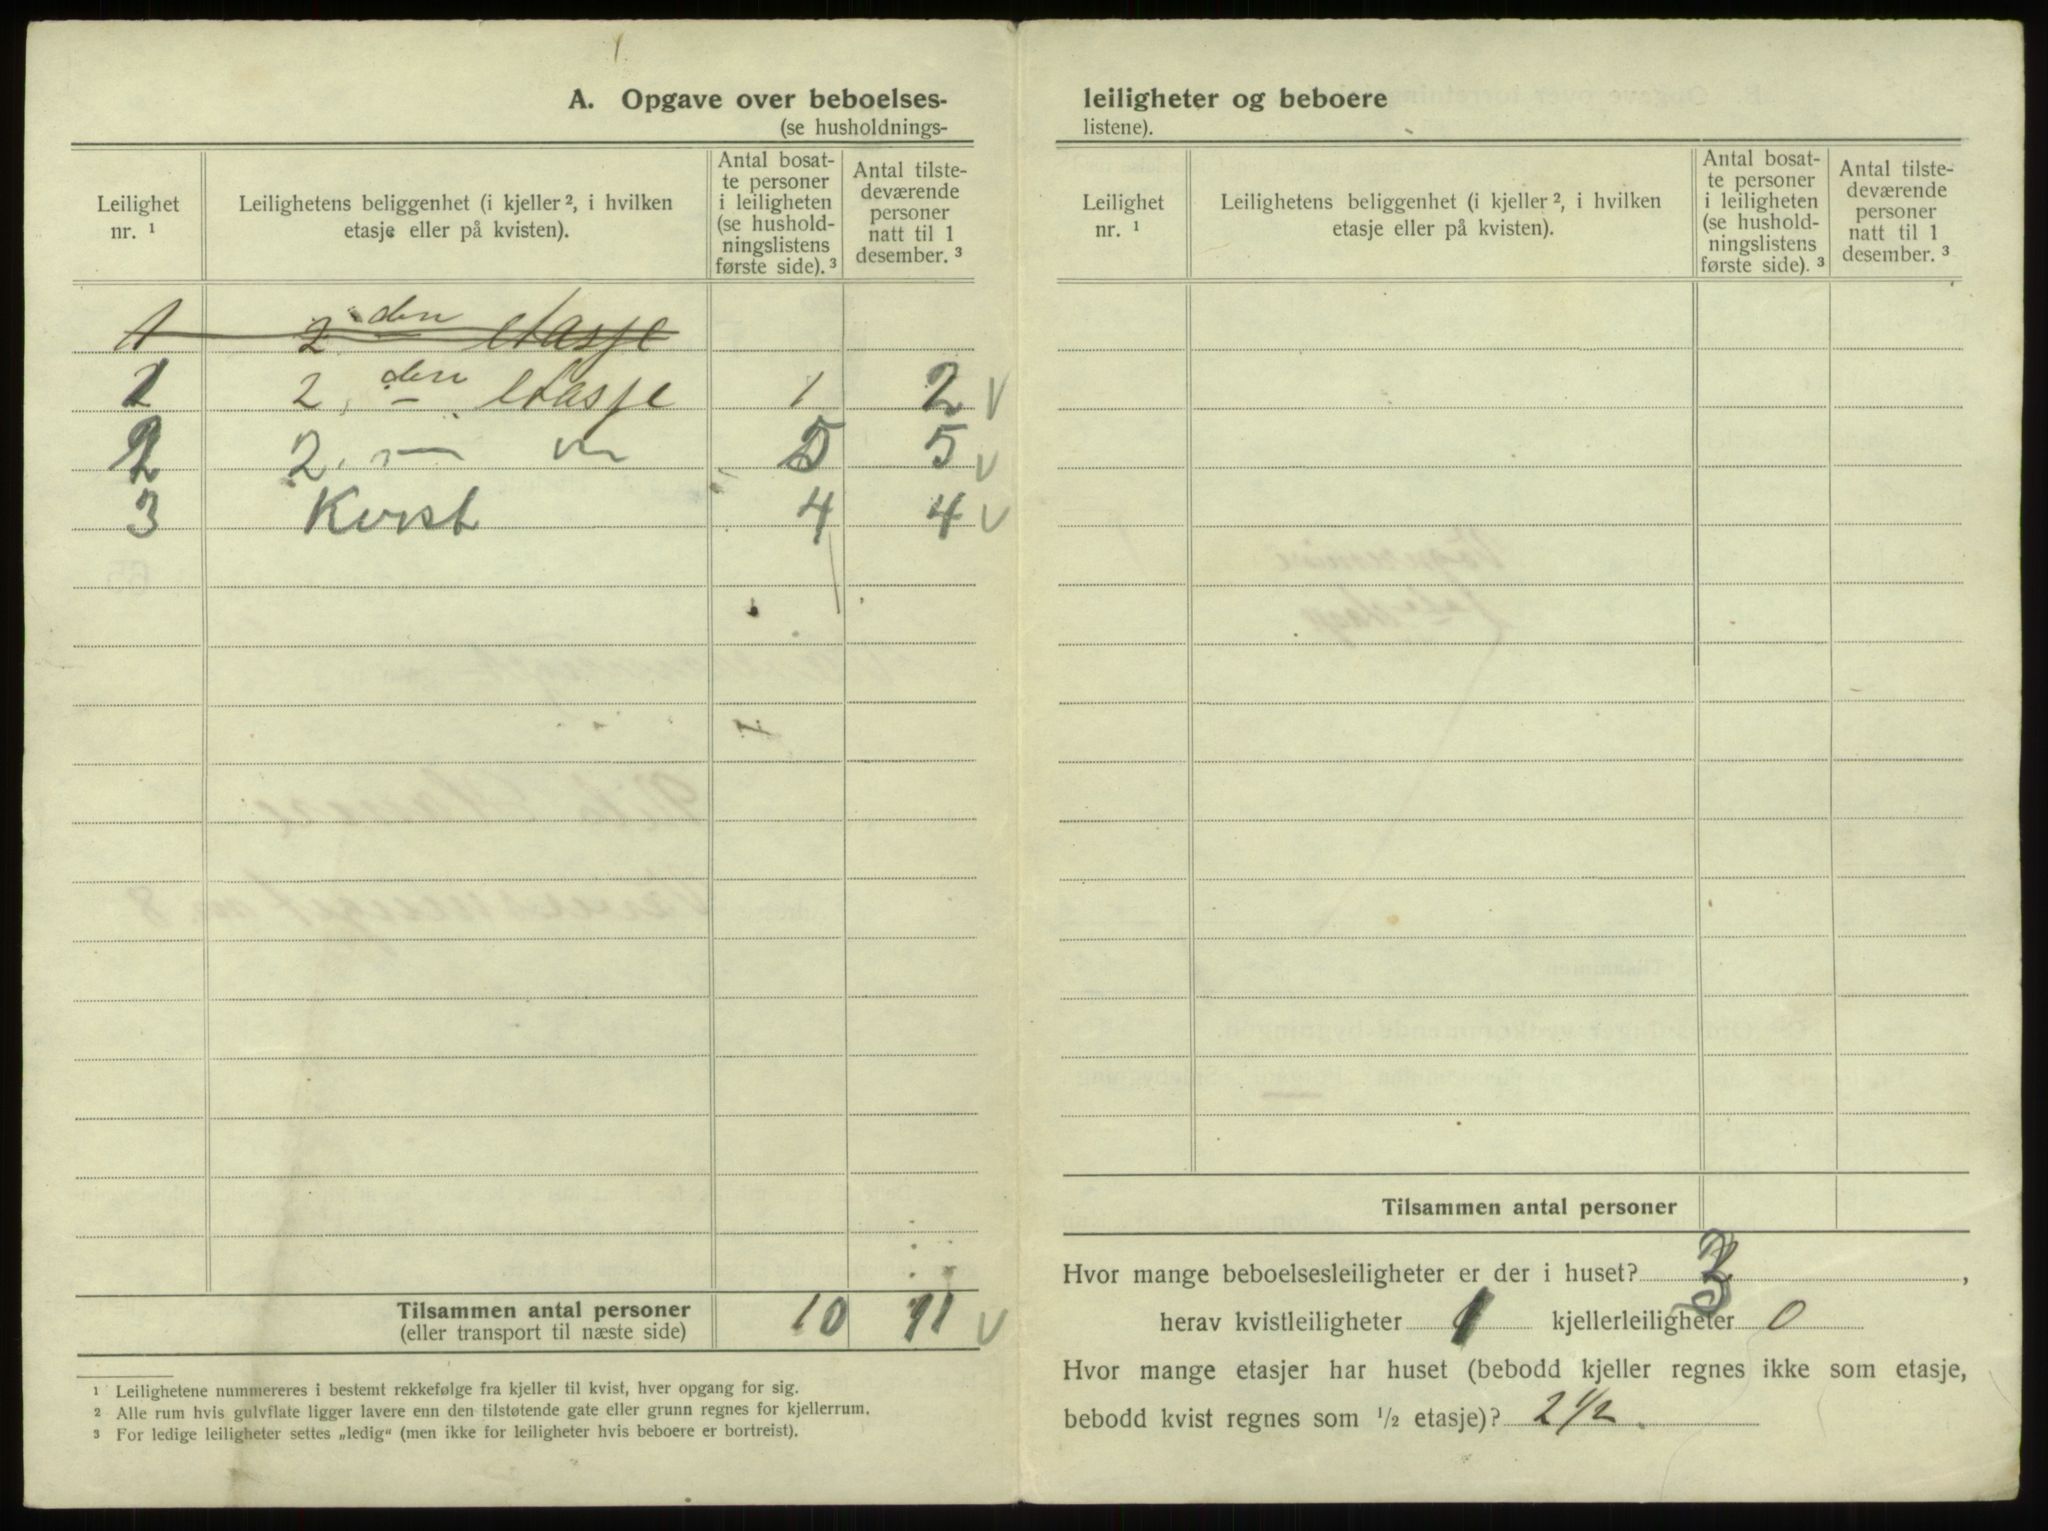 A. Opgave over beboelses-
(se husholdnings-
Leilighet nr. ¹
Leilighetens beliggenhet (i kjeller ², i hvilken etasje eller på kvisten).
Antal bosat-
te personer
i leiligheten
(se hushold-
ningslistens
første side). ³
Antal tilste-
deværende
personer
natt til 1
desember. ³
1 2. den etasje
1 2. den etasje 1 2 V
2 2. — " — 5 5 V
3 Kvist 4 4 V
Tilsammen antal personer 10 11 V
(eller transport til næste side)
¹ Leilighetene nummereres i bestemt rekkefølge fra kjeller til kvist, hver opgang for sig.
² Alle rum hvis gulvflate ligger lavere enn den tilstøtende gate eller grunn regnes for kjellerrum.
³ For ledige leiligheter settes „ledig“ (men ikke for leiligheter hvis beboere er bortreist).
leiligheter og beboere
listene).
Leilighet nr. ¹
Leilighetens beliggenhet (i kjeller ², i hvilken etasje eller på kvisten).
Antal bosat-
te personer
i leiligheten
(se hushold-
ningslistens
første side). ³
Antal tilste-
deværende
personer
natt til 1
desember. ³
Tilsammen antal personer
Hvor mange beboelsesleiligheter er der i huset? 3,
herav kvistleiligheter 1 kjellerleiligheter 0
Hvor mange etasjer har huset (bebodd kjeller regnes ikke som etasje,
bebodd kvist regnes som ½ etasje)? 2 ½.